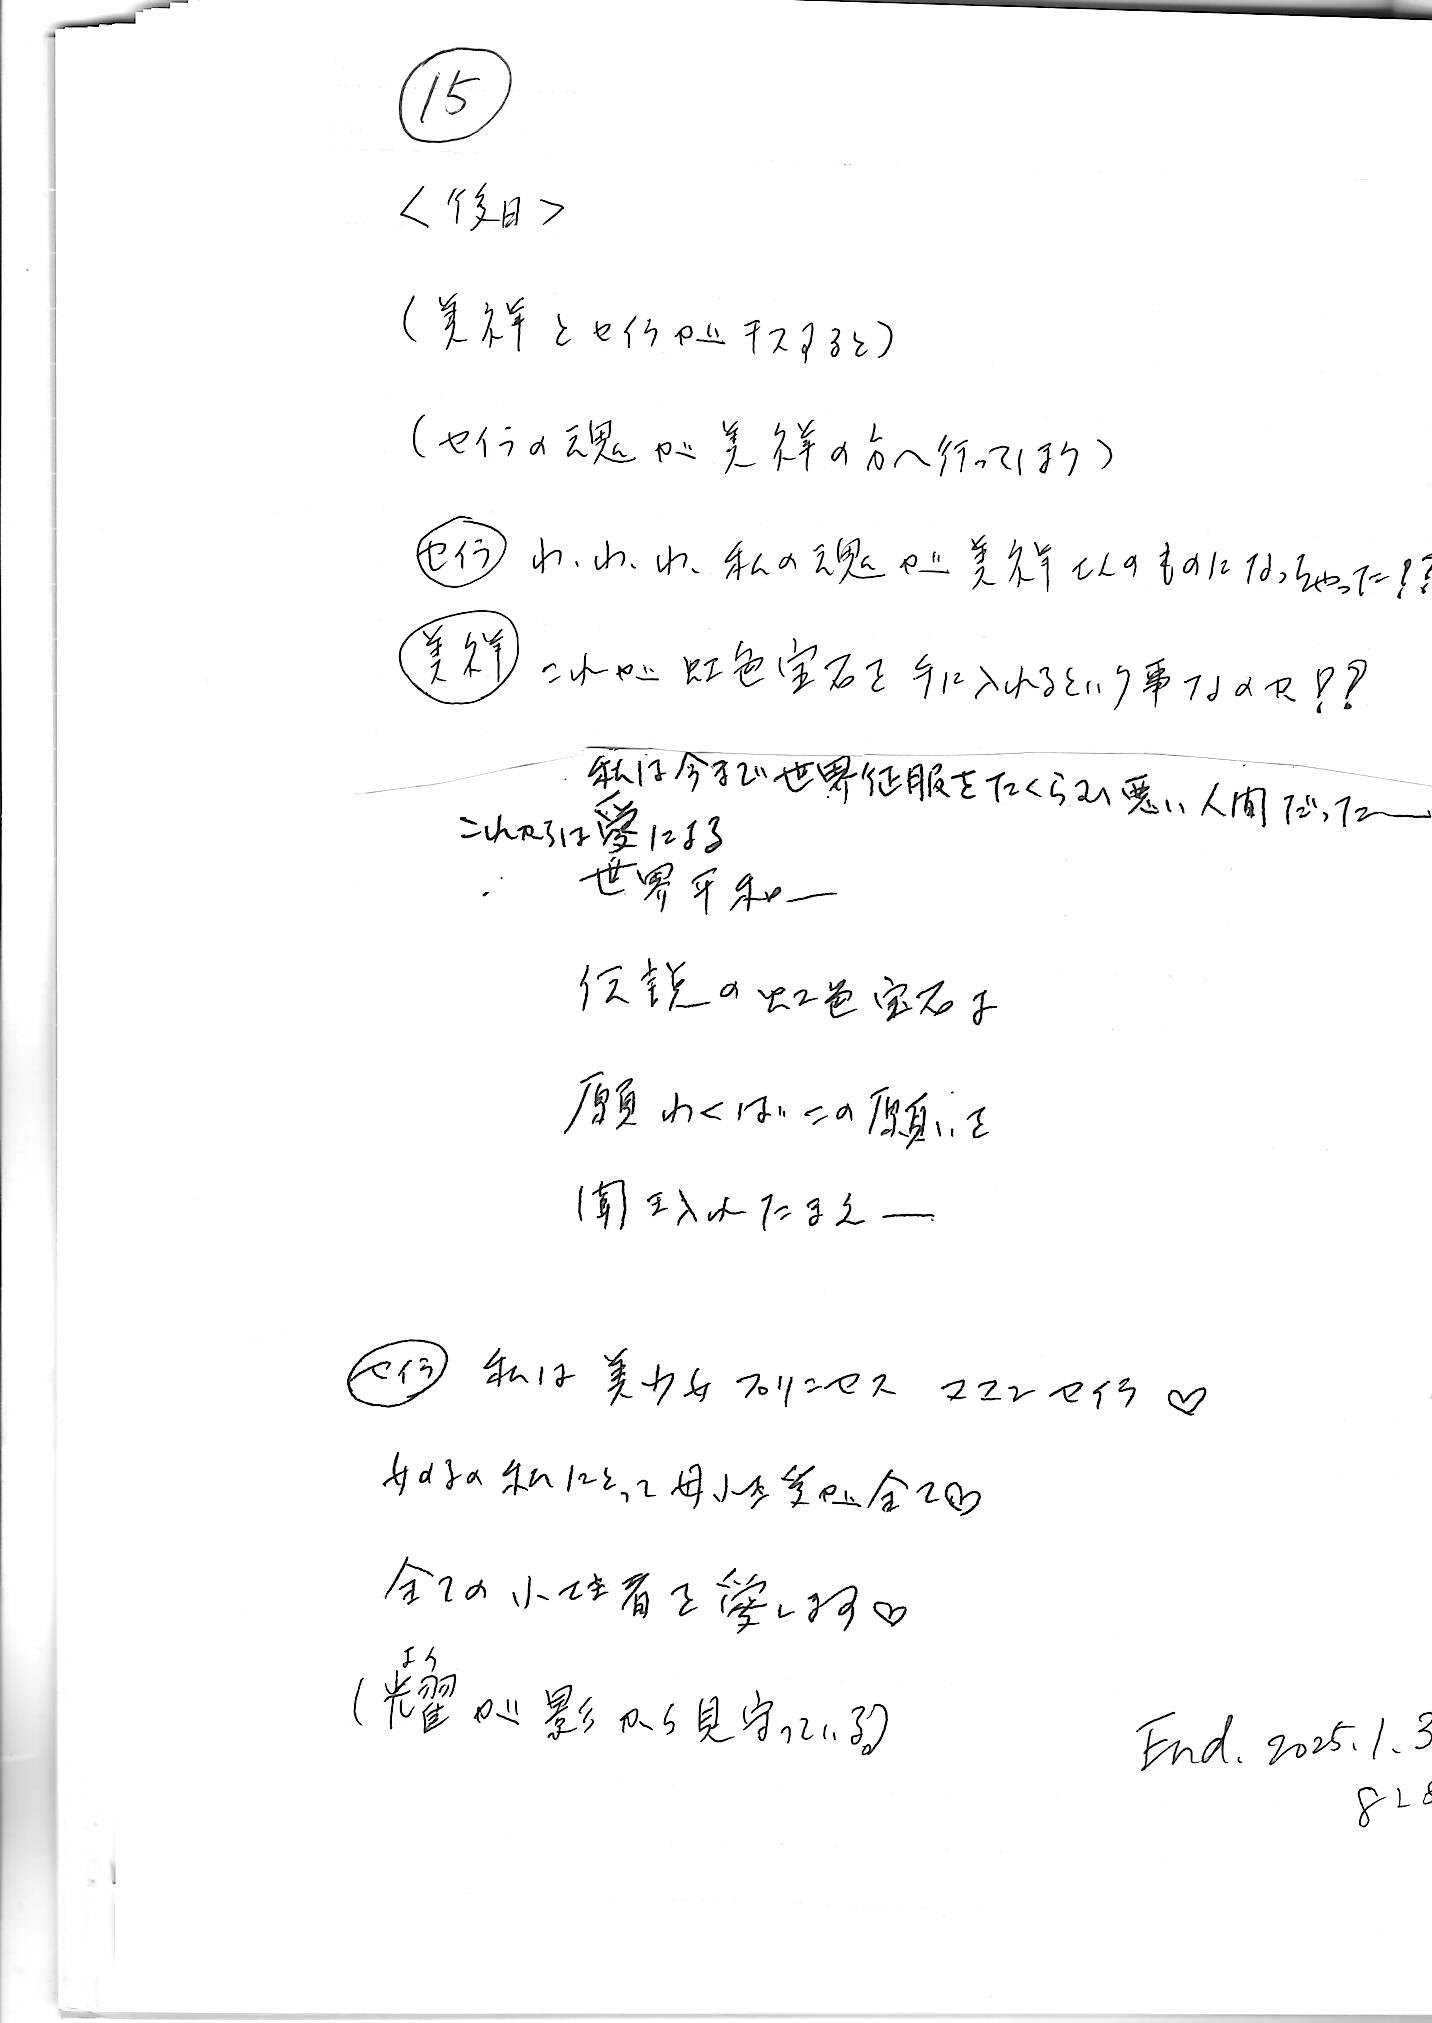 15
<後日>
(美祥とセイラがキスすると)
(セイラの魂が美祥の方へ行ってしまう)
セイラ わ、わ、わ、私の魂が美祥さんのものになっちゃった!?
美祥 これが虹色宝石を手に入れるという事なのか!??
私は今まで世界征服をたくらむ悪い人間だった―
これからは愛による
世界平和―
伝説の虹色宝石よ
願わくばこの願いを
聞き入れたまえ―
セイラ 私は美少女プリンセス セイラ♡
女の子の私にとって 愛が全て♡
全ての 者を愛します♡
よう
(耀が影から見守っている。)
End. 2025.1.3